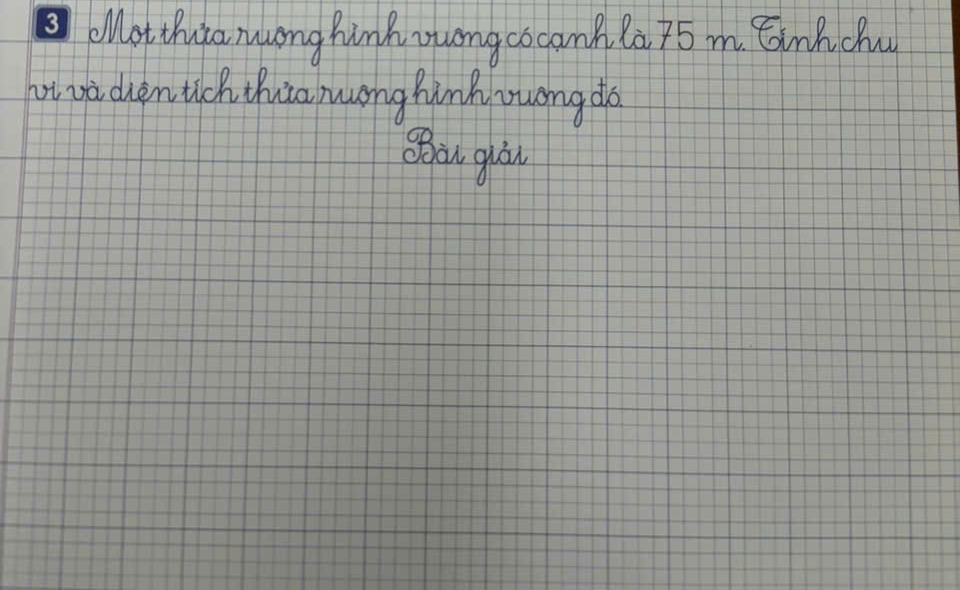 3 Một thửa ruộng hình vuông có cạnh là 75 m. Tính chu
vi và diện tích thửa ruộng hình vuông đó.
Bài giải